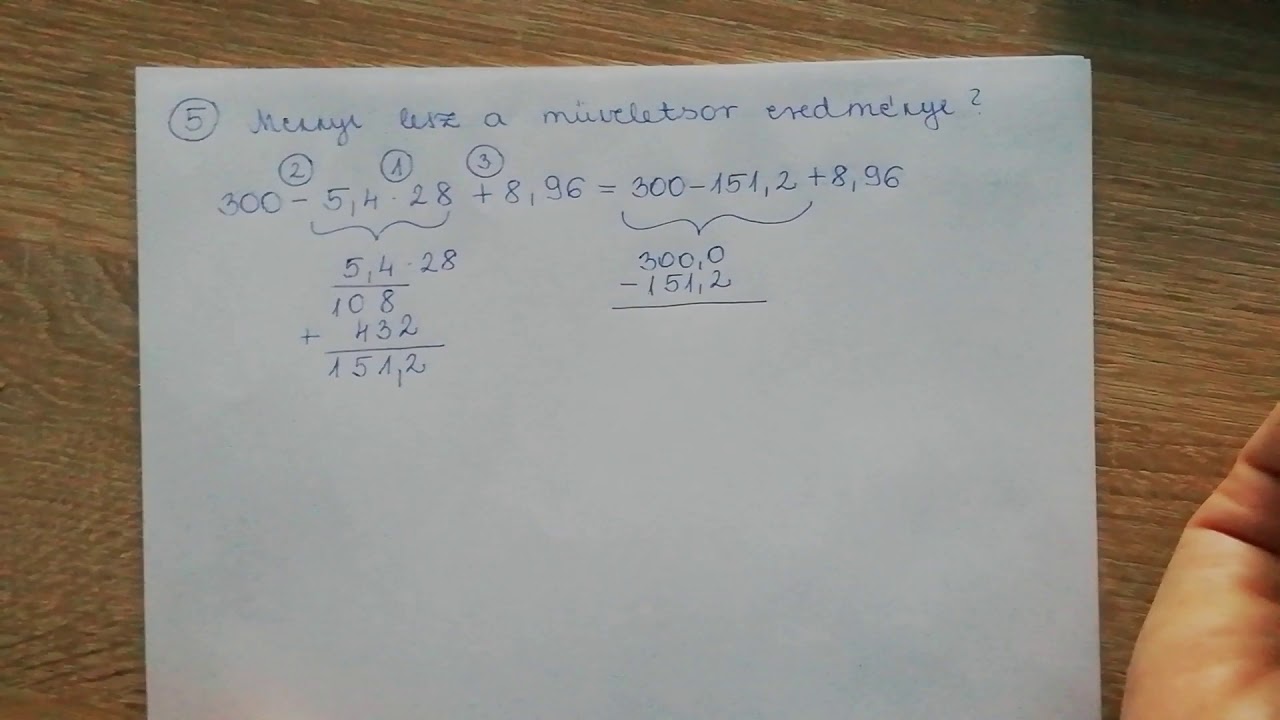 ⑤ Mennyi lesz a műveletsor eredménye?
② ① ③
300 - 5,4 · 28 + 8,96 = 300 - 151,2 + 8,96
5,4 · 28
108
+ 432
151,2
300,0
-151,2